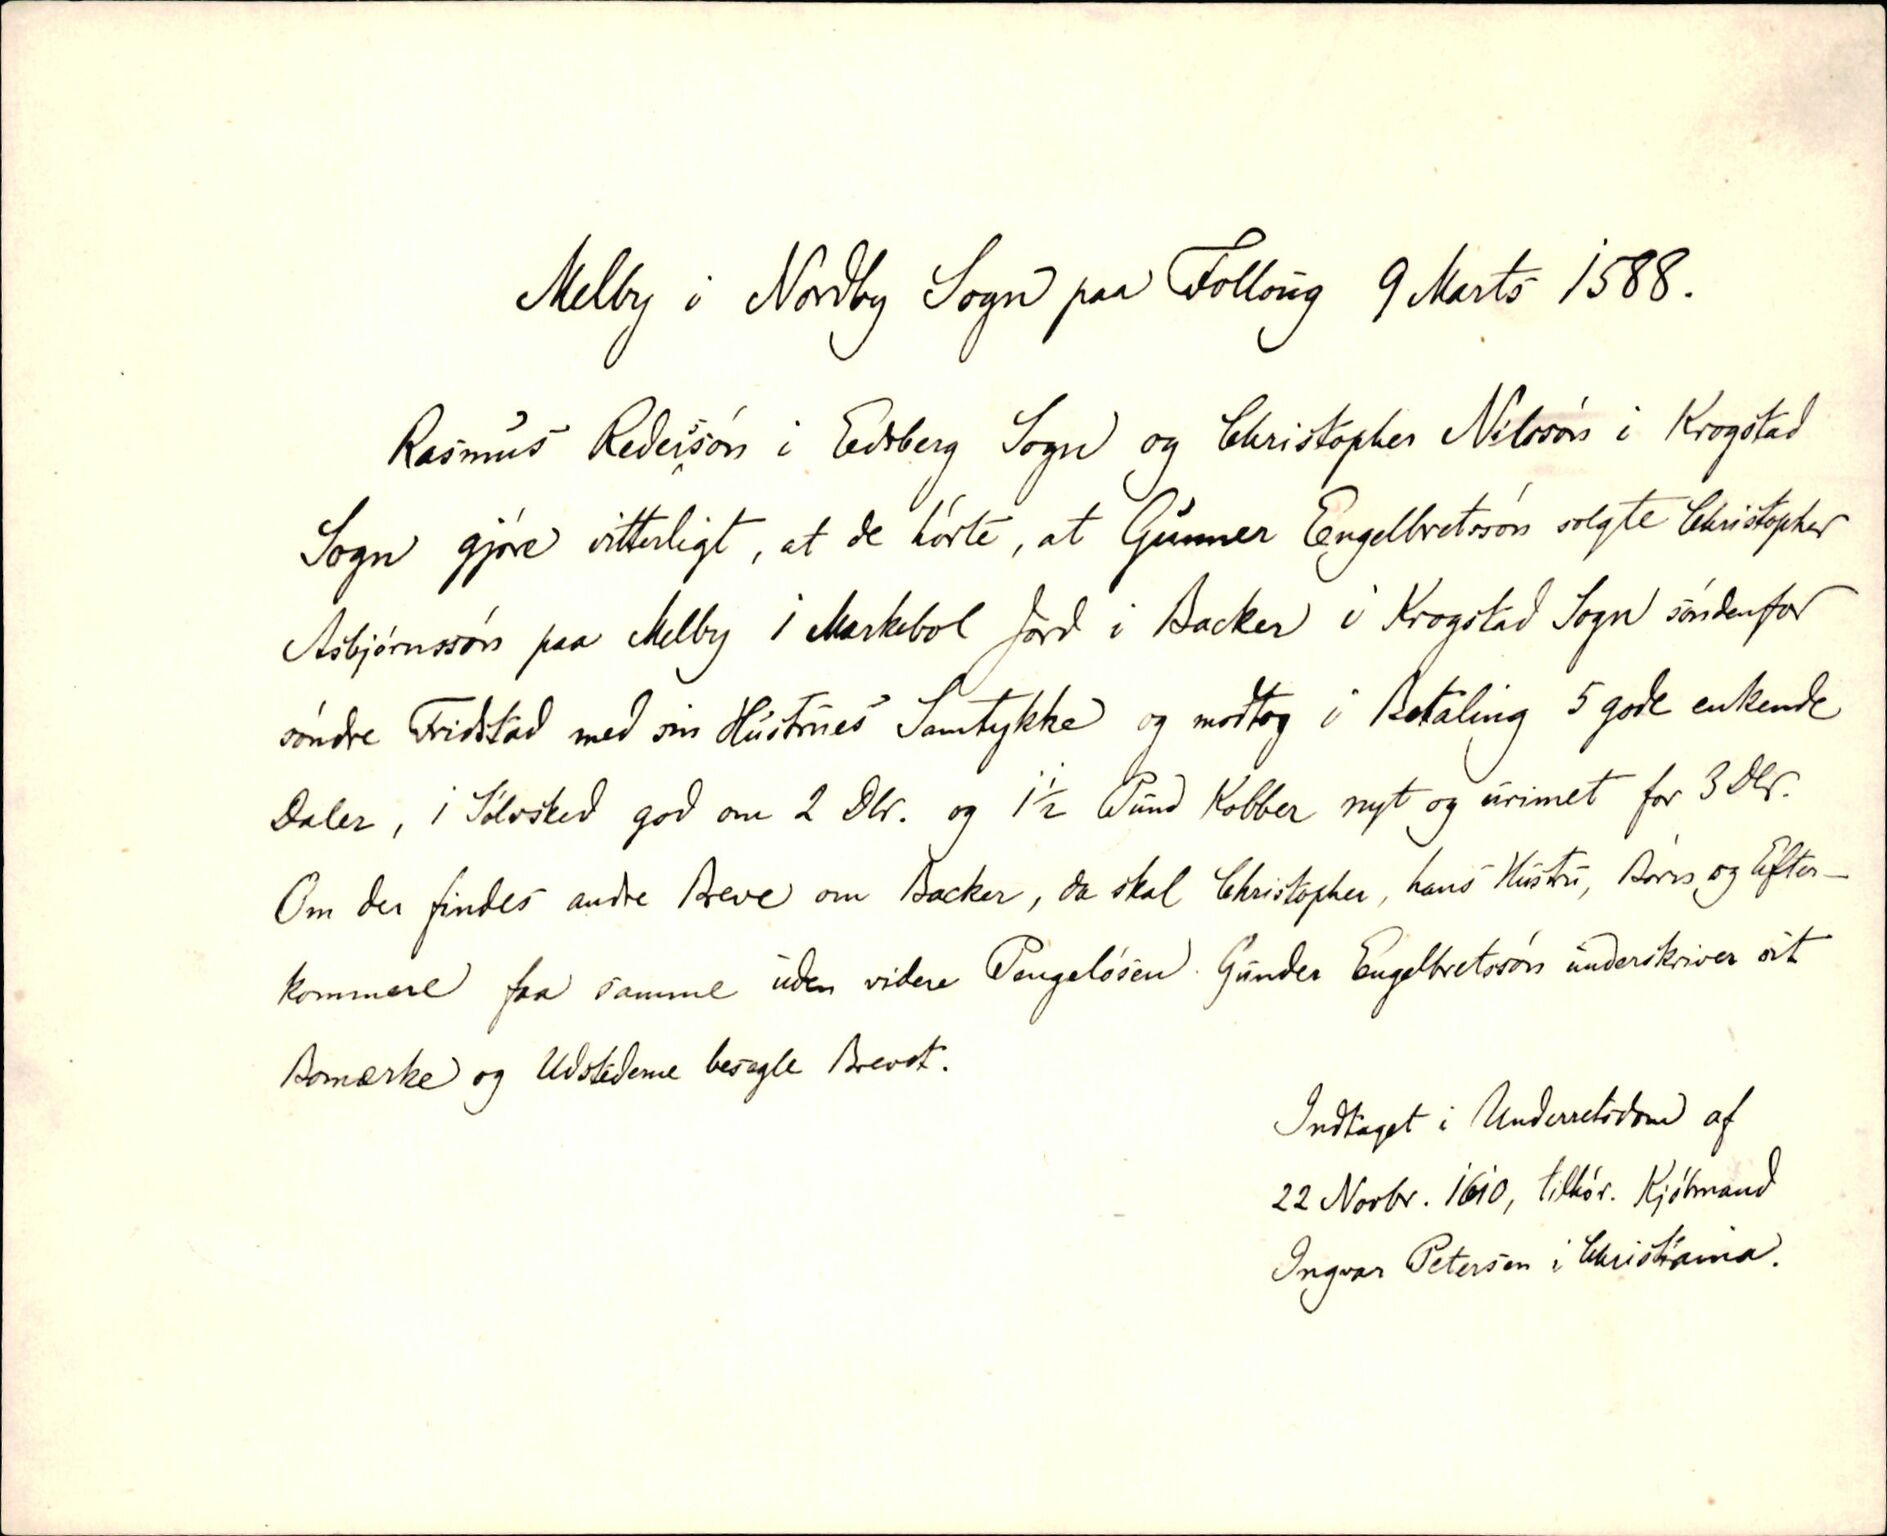 Melby i Nordby Sogn paa Folloug 9 Marts 1588.
Rasmus Rederssön i Edsberg Sogn og Christopher Nilssön i Krogstad
Sogn gjöre vitterligt, at de hörte, at Gunner Engelbretssön solgte Christopher
Asbjörnssön paa Melby 1 Markebol Jord i Backer i Krogstad Sogn söndenfor
söndre Fridstad med sin Hustrues Samtykke og modtog i Betaling 5 gode enkende
Daler, 1 Sölvsked god om 2 Dlr. og 1 1/2 Pund Kobber nyt og urimet for 3 Dlr.
Om der findes andre Breve om Backer, da skal Christopher, hans Hustru, Börn og Efter-
kommere faa samme uden videre Pengelösen. Gunder Engelbretssön underskriver sit
Bomærke og Udstederne besegle Brevet.
Indtaget i Underretsdom af
22 Novbr. 1610, tilhör. Kjöbmand
Ingvar Petersen i Christiania.